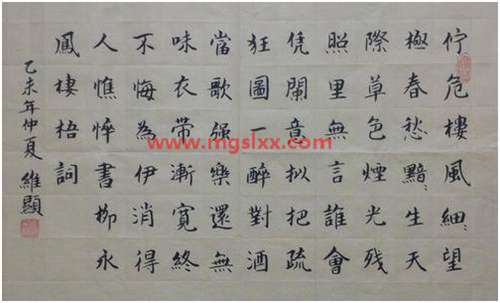 佇危樓風細〻望
極春愁黯〻生天
際草色煙光残
照里無言誰會
凭闌意拟把疏
狂圖一醉對酒
當歌强樂還無
味衣帶漸寬終
不悔為伊消得
人憔悴書柳永
鳳棲梧詞
乙未年仲夏 維顯
www.mgslxx.com